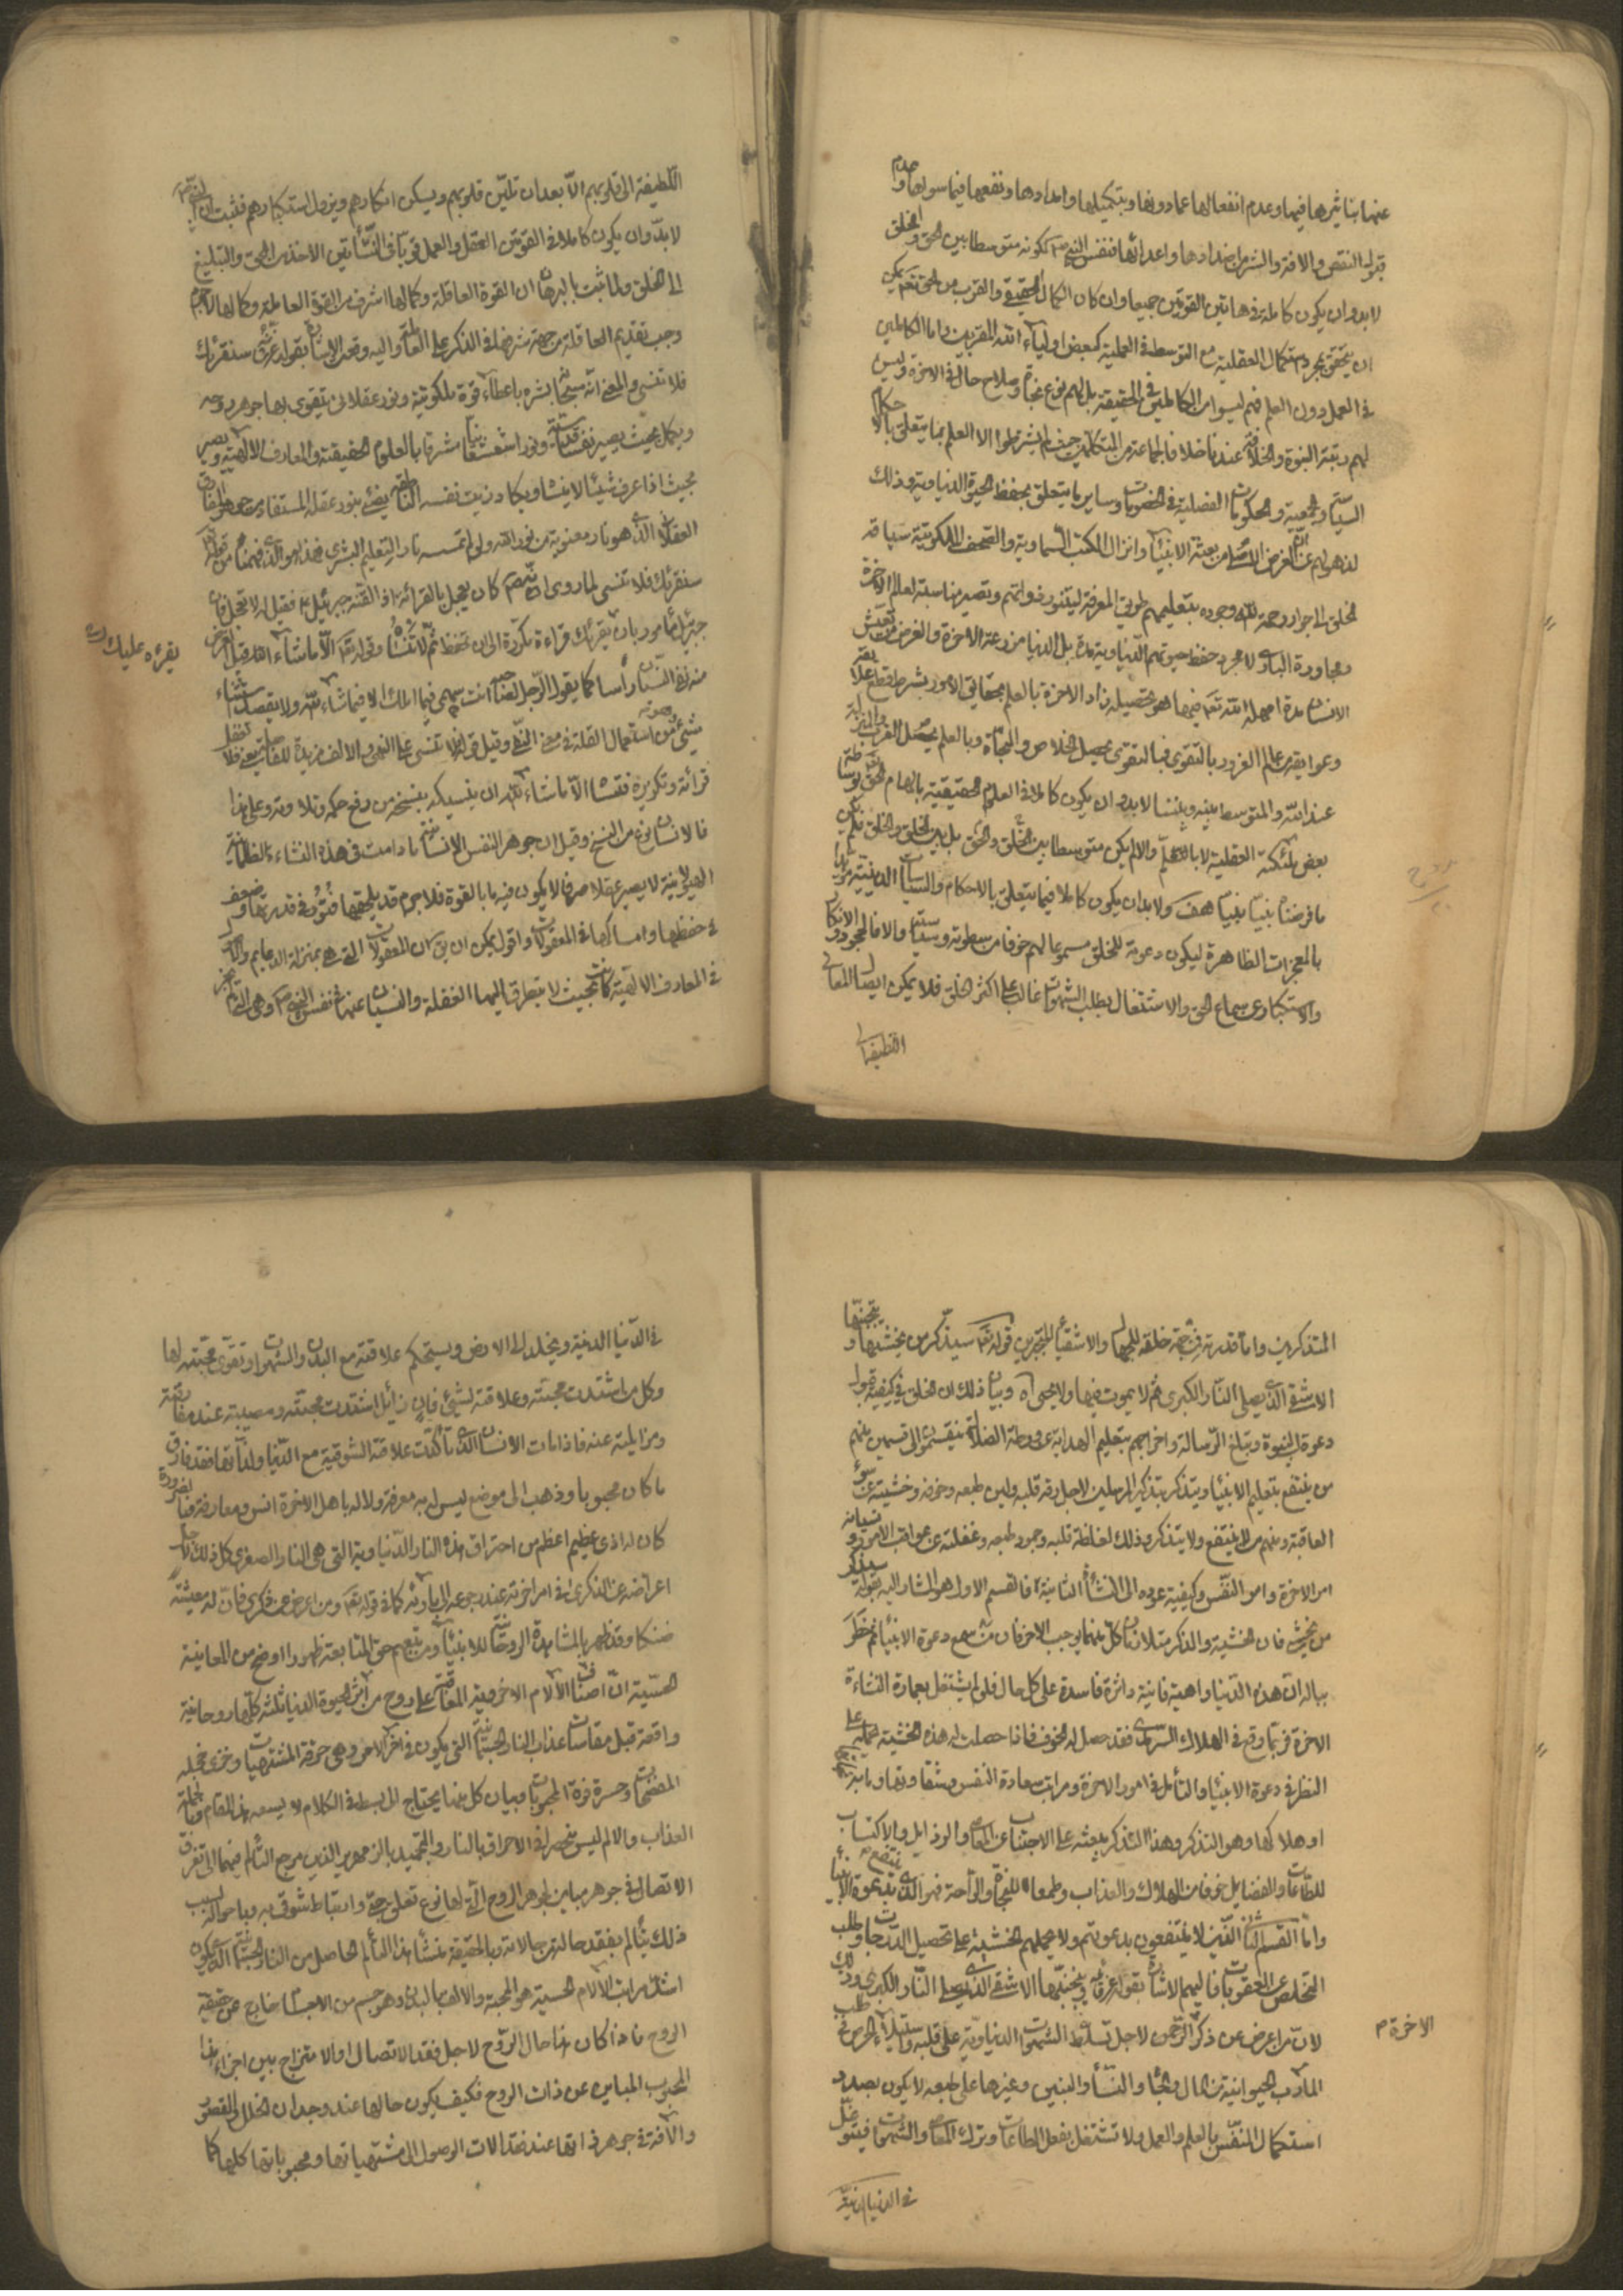 عنها بتاثيرها فيها وعدم انفعالها عما دونها وبتكميلها وامدادها ونفعها فيما سواها وعدم
قبولها النقص والافة والشر من اضدادها واعدائها فنفس النبى ص لكونه متوسطا بين الحق والخلق
لابد وان يكون كاملة فى هاتين القوتين جميعا وان كان الكمال الحقيقى والقرب من الحق تعم يمكن
ان يتحقق بمجرد كمال العقلية مع التوسط فى العملية كبعض اولياء الله المقربين واما الكاملين
فى العمل دون العلم فهم ليسوا من الكاملين فى الحقيقة بل لهم نوع نجاة وصلاح حال فى الاخرة وليس
لهم رتبة النبوة والخلافة عندنا خلافا لجماعة من المتكلمين حيث لم يشترطوا الا العلم بما يتعلق بالاحكام
السياسية والحكومات الفصلية فى الخصومات وساير ما يتعلق بحفظ الحيوة الدنياوية وذلك
لذهولهم عن ان الغرض الاصلى من بعثة الانبياء وانزال الكتب السماوية والصحف الملكوتية سياقة
الخلق الى جوار رحمة الله وجوده بتعليمهم طريق المعرفة ليتنور ذواتهم وتصير مناسبة لعالم الاخرة
ومجاورة البارى لا مجرد حفظ حيوتهم الدنياوية مدة بل الدنيا مزرعة الاخرة والغرض من تعيش
الانسان مدة امهله الله تعم فيها هو تحصيله زاد الاخرة بالعلم بحقائق الامور بشرط قطع علايقه
وعوايقه عن عالم الغرور بالتقوى فبالتقوى يحصل الخلاص والنجاة وبالعلم يحصل القرب والمنزلة
عند الله والمتوسط بينه وبيننا لابد وان يكون كاملا فى العلوم الحقيقية بالهام الحق تعم بوساطة
بعض ملئكته العقلية لا بالتعلم والا لم يكن متوسطا بين الخلق والحق بل بين الخلق والخلق فلم يكن
ما فرضنا نبيا نبيا هف ولابد ان يكون كاملا فيما يتعلق بالاحكام والسياسات الدينية مؤيدا
بالمعجزات الظاهرة ليكون دعوته للخلق مسموعا لهم خوفا من سطوته وسياسته والا فالجحود والانكار
والاستكبار عن سماع الحق والاشتغال بطلب الشهوات غالب على اكثر الخلق فلا يمكن ايصال المعانى
اللطيفة الى
اللطيفة الى قلوبهم الا بعد ان تلين قلوبهم ويسكن انكارهم ويزول استكبارهم فثبت ان النبى ص
لابد وان يكون كاملا فى القوتين العقل والعمل قويا فى النشأتين الاخذ من الحق والتبليغ
الى الخلق ولما ثبت بالبرهان ان القوة العاقلة وكمالها اشرف من القوة العاملة وكمالها لا جرم
وجب تقديم العاقلة من جهة شرفها فى الذكر على العاملة واليه وقعت الاشارة بقوله عز شأنه سنقرئك
فلا تنسى والمعنى انه سبحانه بشره باعطاء قوة ملكوتية ونور عقلانى يتقوى بها جوهر روحه
ويكمل بحيث يصير نفسا قدسية ونورا شعشعانيا مشرقا بالعلوم الحقيقية والمعارف الالهية ويصير
بحيث اذا عرف شيئا لا ينساه ويكاد زيت نفسه الناطقة يضئ بنور عقله المستفاد من جوهر الفعال
العقلانى الذى هو نار معنوية من نور الله ولو لم تمسسه نار التعليم البشرى فهذا هو الذى فهمناه من قوله
سنقرئك فلا تنسى لما روى انه ص كان يعجل بالقرائة اذا لقنه جبرئيل ع فقيل له لا تعجل فان
جبرئيل مأمور بان يقرئك قراءة مكررة الى ان تحفظ ثم لا تنساه وقوله تعم الا ما شاء الله قيل الغرض
يقرءه عليك
منه نفى النسيان رأسا كما يقول الرجل لصاحبه انت سهيمى فيما املك الا فيما شاء الله ولا يقصد استثناء
شئ وهو من استعمال القلة فى معنى النفى وقيل قوله فلا تنسى على النهى والالف مزيدة للفاصلة يعنى فلا تغفل
قرائته وتكريره فتنساه الا ما شاء الله ان ينسيكه بنسخه من رفع حكمه وتلاوته وعلى هذا
فالانساء نوع من النسخ وقيل ان جوهر النفس الانسانية ما دامت فى هذه النشاءة الظلمانية
الهيولانية لا يصير عقلا صرفا لا يكون فيه ما بالقوة فلا جرم قد يلحقها فتور فى قدرتها وضعف
فى حفظها وامساكها فى المعقولات واقول يمكن ان يق ان المعقولات التى هى بمنزلة الدعايم والاركان
فى المعارف الالهية كانت بحيث لا يتطرق اليها الغفلة والنسيان عنها فى نفس النبى ص وهى التى
المتذكرين واما قدرته فى جهة خلقه للجهال والاشقياء المتجبرين قوله تعم سيذكر من يخشى ويتجنبها
الاشقى الذى يصلى النار الكبرى ثم لا يموت فيها ولا يحيى اه وبيان ذلك ان الخلق فى كيفية قبول
دعوة النبوة وتبلغ الرسالة واخراجهم بتعليم الهداية عن ورطة الضلالة ينقسمون الى قسمين منهم
من ينتفع بتعليم الانبياء ويتذكر بتذكير المرسلين لاجل رقة قلبه ولين طبعه وخوفه وخشيته عن سوء
العاقبة ومنهم من لا ينتفع ولا يتذكر وذلك لغلظة قلبه وجمود طبعه وغفلته عن عواقب الامور ونسيانه
امر الاخرة وامر النفس وكيفية عوده الى النشأة الثانية فالقسم الاول هو المشار اليه بقوله سيذكر
من يخشى فان الخشية والذكر متلازمان كل منهما يوجب الاخر فان من سمع دعوة الانبياء ثم خطر
بباله ان هذه الدنيا واهية فانية داثرة فاسدة على كل حال فلو لم يشتغل بعمارة النشاءة
الاخرة فربما وقع فى الهلاك السرمدى فقد حصل له الخوف فاذا حصلت له هذه الخشية حمله على
النظر فى دعوة الانبياء والتأمل فى امور الاخرة ومراتب سعادة النفس وشقاوتها وما ينجيها
او هلاكها وهو التذكر وهذا التذكر يبعثه على الاجتناب عن المعاصى والرذايل والاكتساب
للطاعات والفضايل خوفا من الهلاك والعذاب وطمعا للنجاة والراحة فهو الذى ينتفع بدعوة الانبياء
واما القسم الثانى الذين لا ينتفعون بدعوتهم ولا يحملهم الخشية على تحصيل الدرجات وطلب
التخلص عن العقوبات فاليهم الاشارة بقوله عز قائله ويتجنبها الاشقى الذى يصلى النار الكبرى وذلك
لان من اعرض عن ذكر الرحمن لاجل تسلط الشهوات الدنياوية على قلبه واستيلاء الحرص فى طلب
الاخرة م
المآرب الحيوانية من المال والجاه والنساء والبنين وغيرها على طبعه لا يكون بصدد
استكمال النفس بالعلم والعمل ولا تشتغل بفعل الطاعات وترك المعاصى والشهوات فيتوغل
فى الدنيا الدنية
فى الدنيا الدنية ويخلد الى الارض ويستحكم علاقته مع البدن والشهوات وتقوى محبته لها
وكل من اشتدت محبته وعلاقته لشئ فان زائل اشتدت محنته ومصيبته عند مفارقته
ومزايلته عنه فاذا مات الانسان الذى تأكدت علاقته الشوقية مع الدنيا ولذاتها فقد فارق
ما كان محبوبا وذهب الى موضع ليس له به معرفة ولا له باهل الاخرة انس ومعارفة فبالضرورة
كان له اذى عظيم اعظم من احتراق هذه النار الدنياوية التى هى النار الصغرى كل ذلك لاجل
اعراضه عن الذكرى فى امر اخرته عند رجوعه الى بارئه كما فى قوله تعم ومن اعرض عن ذكرى فان له معيشة
ضنكا وقد ظهر بالمشاهدة الروحانية للانبياء ومن تبعهم حق المتابعة ظهورا اوضح من المعاينة
الحسية ان اصناف الالام الاخروية المعاقبة على روح من اثر الحيوة الدنيا ثلثة كلها روحانية
واقعة قبل مقاسات عذاب النار الجسمانية التى يكون فى اخر الامر وهى حرقة المشتهيات وخزى خجلة
المفضحات وحسرة فوة المحبوبات وبيان كل منها يحتاج الى بسط فى الكلام لا يسعه هذا المقام وبالجملة
العذاب والالم ليس منحصرا فى الاحراق بالنار والتجميد بالزمهرير الذين مرجع التألم فيهما الى تفرق
الاتصال فى جوهر مباين لجوهر الروح التى لها نوع تعلق به وارتباط شوقى به وباحواله بسبب
ذلك يتألم بفقد حالة من حالاته وبالحقيقة منشأ هذا التألم الحاصل من النار الجسمانية الذى يكون
اشد مراتب الالام الحسية هو المحبة والالف بالبدن وهو جسم من الاجسام خارج عن حقيقة
الروح فاذا كان هذا حال الروح لاجل فقد الاتصال او الامتزاج بين اجزاء هذا
المحبوب المباين عن ذات الروح فكيف يكون حالها عند وجدان الخلل والقصور
والافة فى جوهر ذاتها عند فقد آلات الوصول الى مشتهياتها ومحبوباتها كلها كما